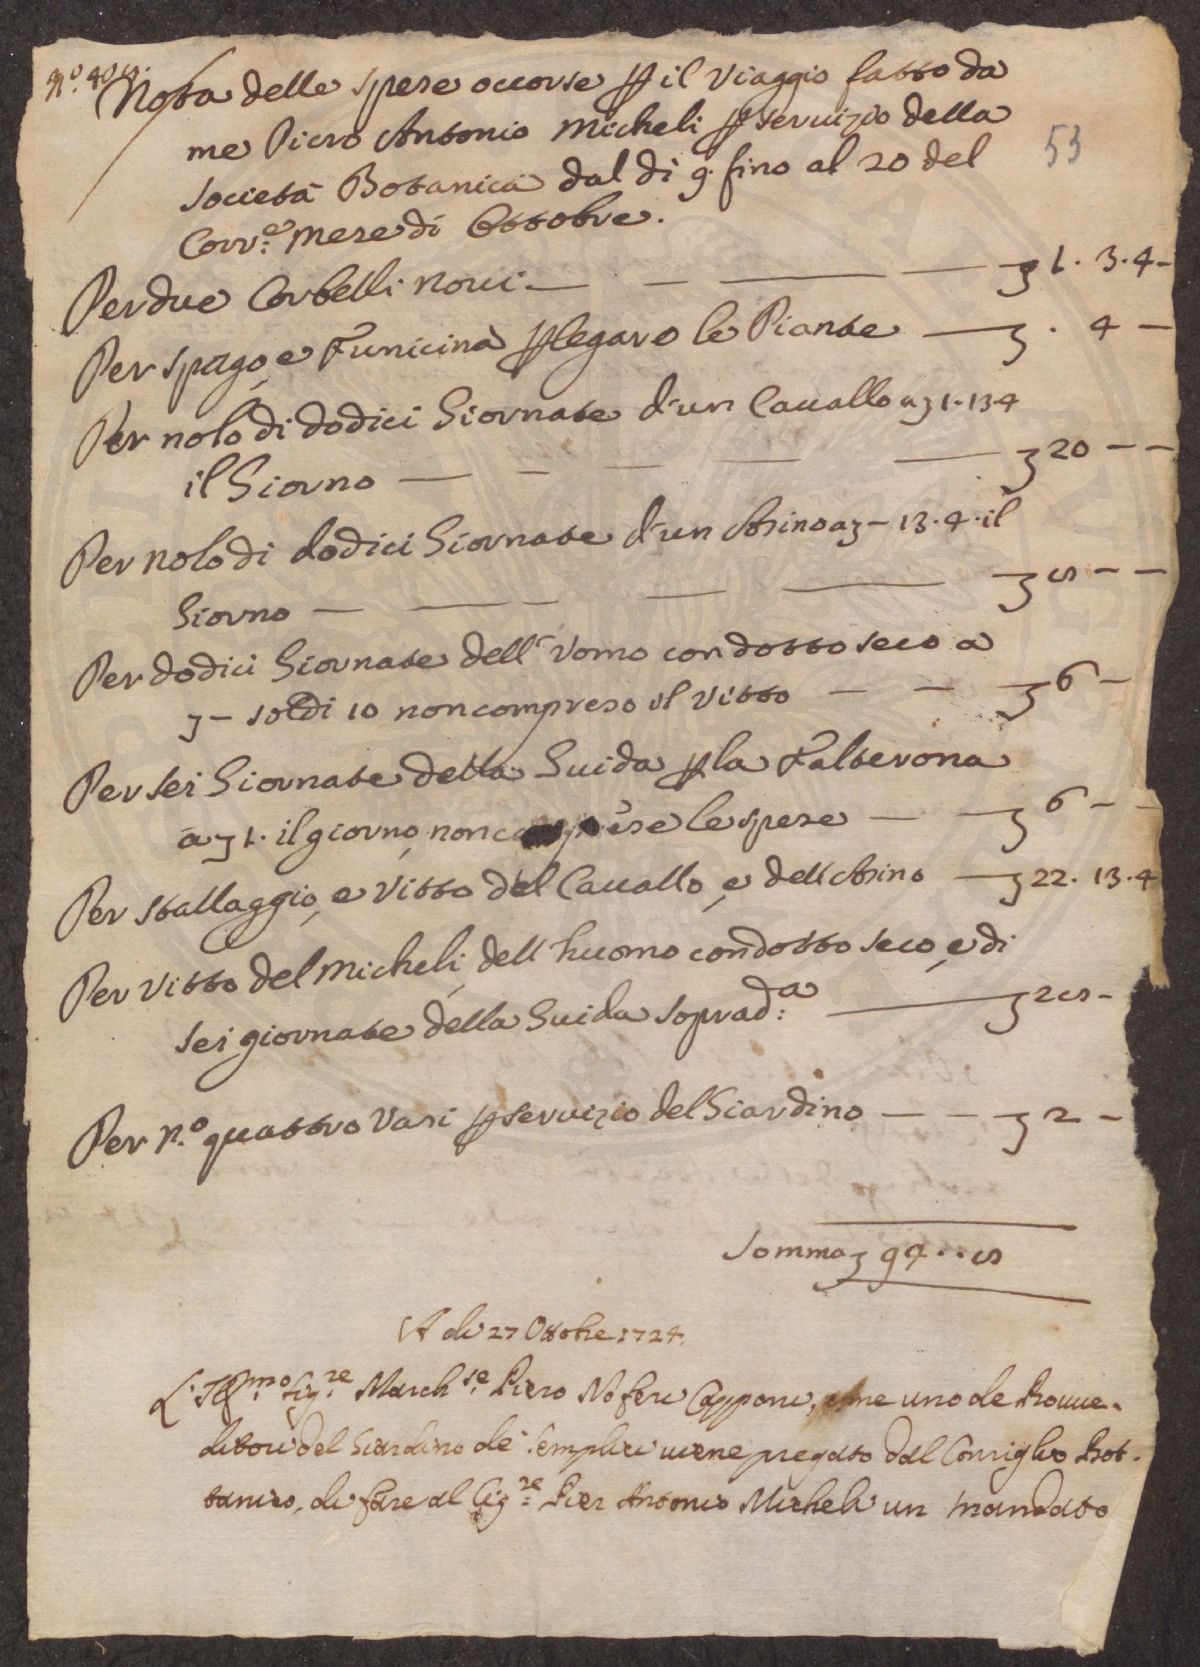 Nota delle spese occorse p il Viaggio fatto da
me Piero Antonio Micheli p servizio della
53
Società Botanica dal dì 9. fino al 20 del
Corr.e Mese di Ottobre.
Per due Corbelli novi — — — — ʒ 1. 3. 4 –
Per spago, e Funicina p legare le Piante — ʒ . 4 –
Per nolo di dodici Giornate d'un Cavallo a ʒ 1. 13. 4
il Giorno — — — — — ʒ 20 – –
Per nolo di dodici Giornate d'un Asino a ʒ – 13. 4. il
Giorno — — — — — ʒ 8 – –
Per dodici Giornate dell' Vomo condotto seco a
ʒ – soldi 10 non compreso il Vitto — — ʒ 6 –
Per sei Giornate della Guida p la Falterona
a ʒ 1. il giorno, non comprese le spese — — ʒ 6 – –
Per stallaggio, e Vitto del Cavallo, e dell'Asino — ʒ 22. 13. 4
Per Vitto del Micheli, dell'huomo condotto seco, e di
sei giornate della Guida soprad:a — ʒ 28 –
Per n.o quattro Vasi p servizio del Giardino — — ʒ 2 –
Somma ʒ 94 . . 8
A di 27 Ottobre 1724.
L'Ill.mo Sig.re March.se Piero Nofri Capponi, come uno de Prove-
ditori del Giardino de' Semplici viene pregato dal Consiglio Bot-
tanico, di fare al Sig.re Pier Antonio Micheli un mandato